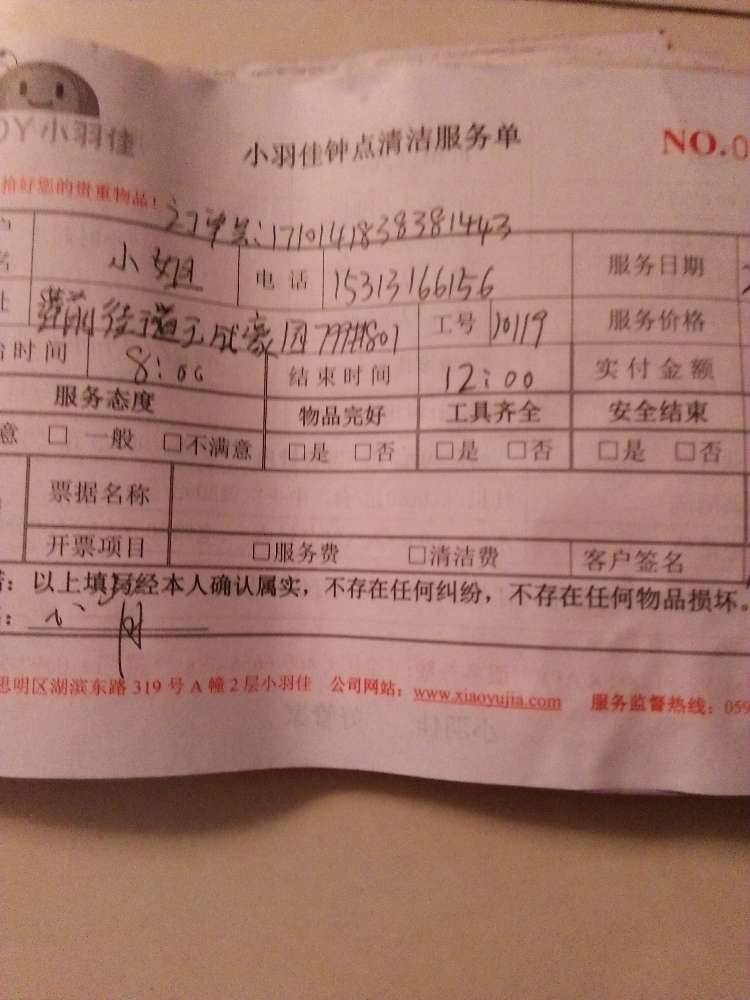 小羽佳
小羽佳钟点清洁服务单
NO.0
拾好您的贵重物品！
订单号：1710141838381443
小姐 电话 15313166156 服务日期
工号 10119 服务价格
时间 8:00 结束时间 12:00 实付金额
服务态度 物品完好 工具齐全 安全结束
意 □ 一般 □不满意 □是 □否 □是 □否 □是 □否
票据名称
开票项目 □服务费 □清洁费 客户签名
：以上填写经本人确认属实，不存在任何纠纷，不存在任何物品损坏。
思明区湖滨东路 319 号 A 幢 2 层小羽佳 公司网站：www.xiaoyujia.com 服务监督热线：059